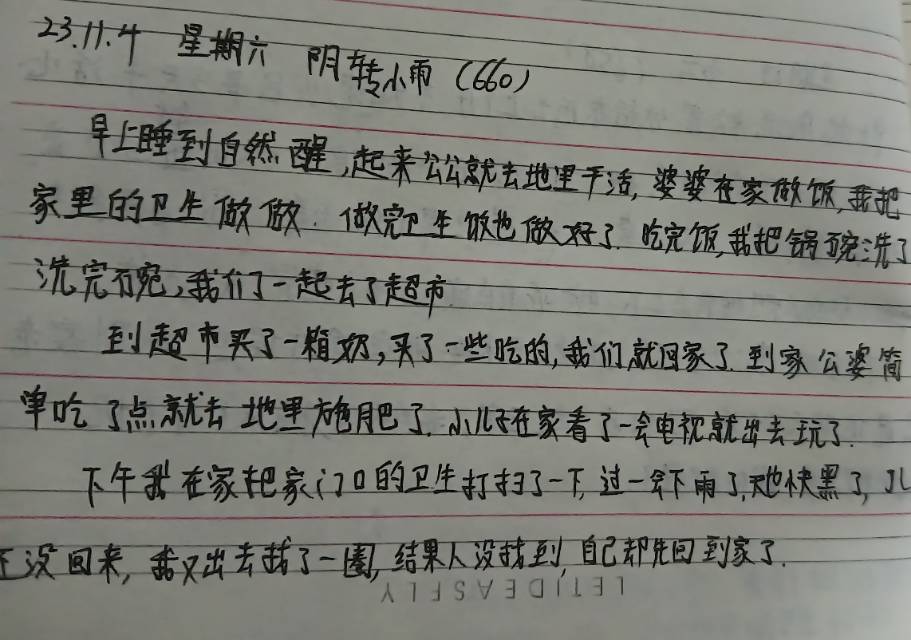 23.11.4 星期六 阴转小雨 (660)
早上睡到自然醒,起来公公就去地里干活,婆婆在家做饭,我把
家里的卫生做做.做完卫生饭也做好了.吃完饭,我把锅碗洗了
洗完碗,我们了一起去了超市
到超市买了一箱奶,买了一些吃的,我们就回家了.到家公婆简
单吃了点就去地里施肥了.小儿子在家看了一会电视就出去玩了.
下午我在家把家门口的卫生打扫了一下,过一会下雨了,天也快黑了,儿
子没回来,我又出去找了一圈,结果人没找到,自己却先回到家了.
LETIDEASFLY